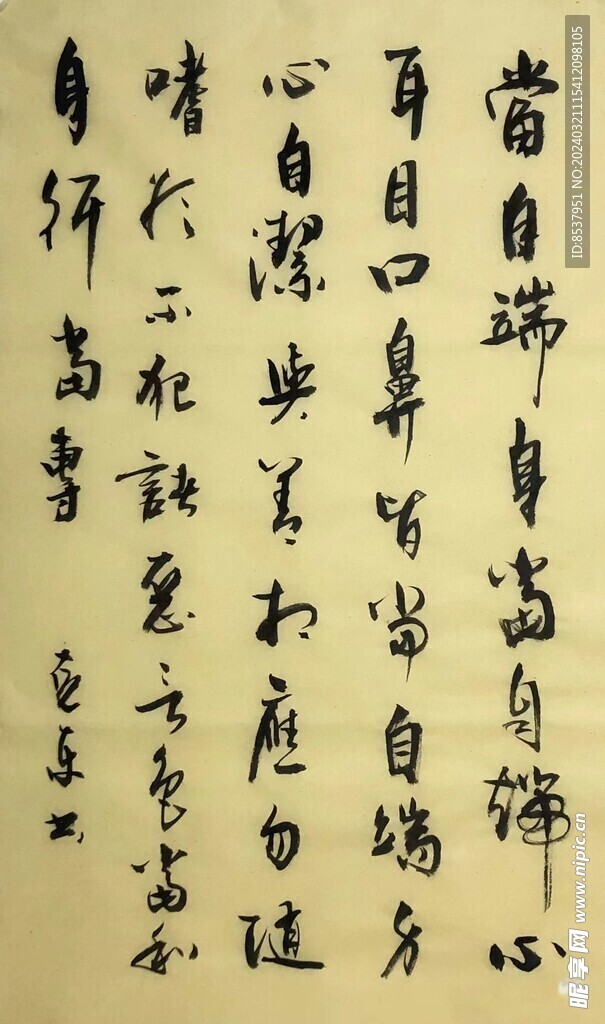 當自端身當自端心
耳目口鼻皆當自端身
心自潔與善相應勿隨
嗜於不犯諸惡言色當和
身行當專
東書
ID:8537951 NO:20240321115412098105
昵享网 www.nipic.cn